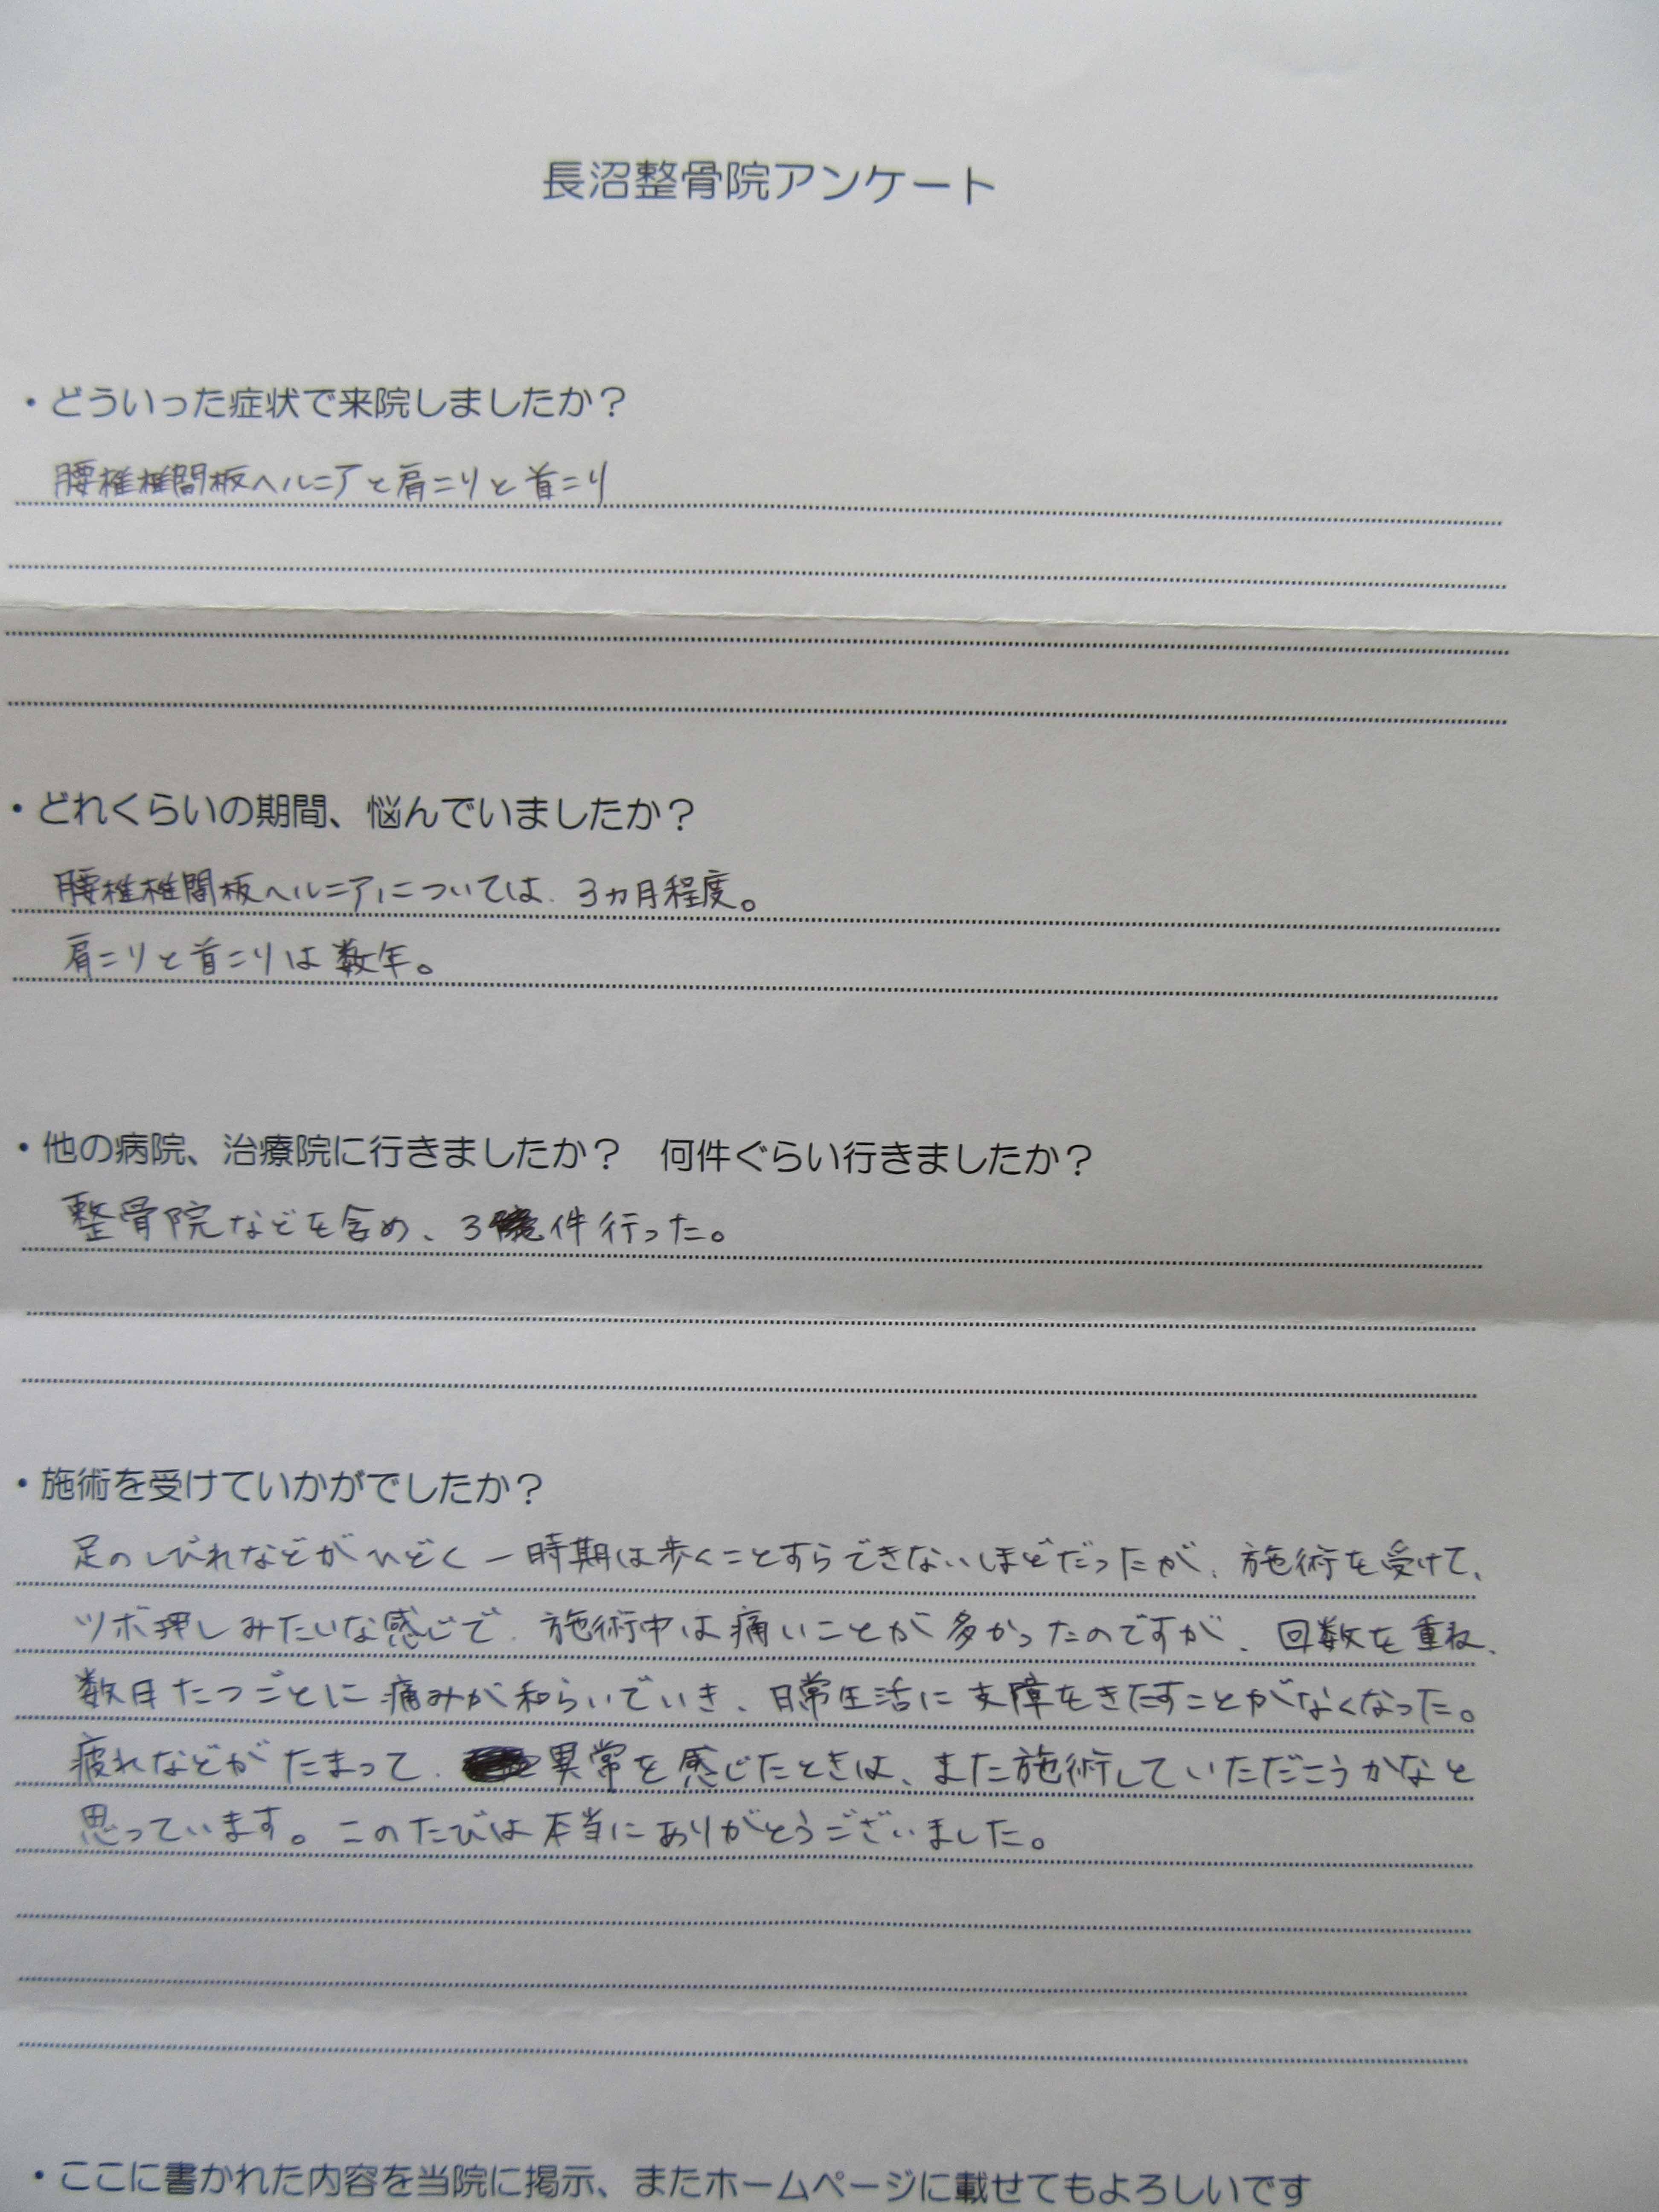 長沼整骨院アンケート
・どういった症状で来院しましたか？
腰椎椎間板ヘルニアと肩こりと首こり
・どれくらいの期間、悩んでいましたか？
腰椎椎間板ヘルニアについては、3ヵ月程度。
肩こりと首こりは数年。
・他の病院、治療院に行きましたか？　何件ぐらい行きましたか？
整骨院などを含め、3件行った。
・施術を受けていかがでしたか？
足のしびれなどがひどく一時期は歩くことすらできないほどだったが、施術を受けて、
ツボ押しみたいな感じで、施術中は痛いことが多かったのですが、回数を重ね、
数日たつごとに痛みが和らいでいき、日常生活に支障をきたすことがなくなった。
疲れなどがたまって、異常を感じたときは、また施術していただこうかなと
思っています。このたびは本当にありがとうございました。
・ここに書かれた内容を当院に掲示、またホームページに載せてもよろしいです